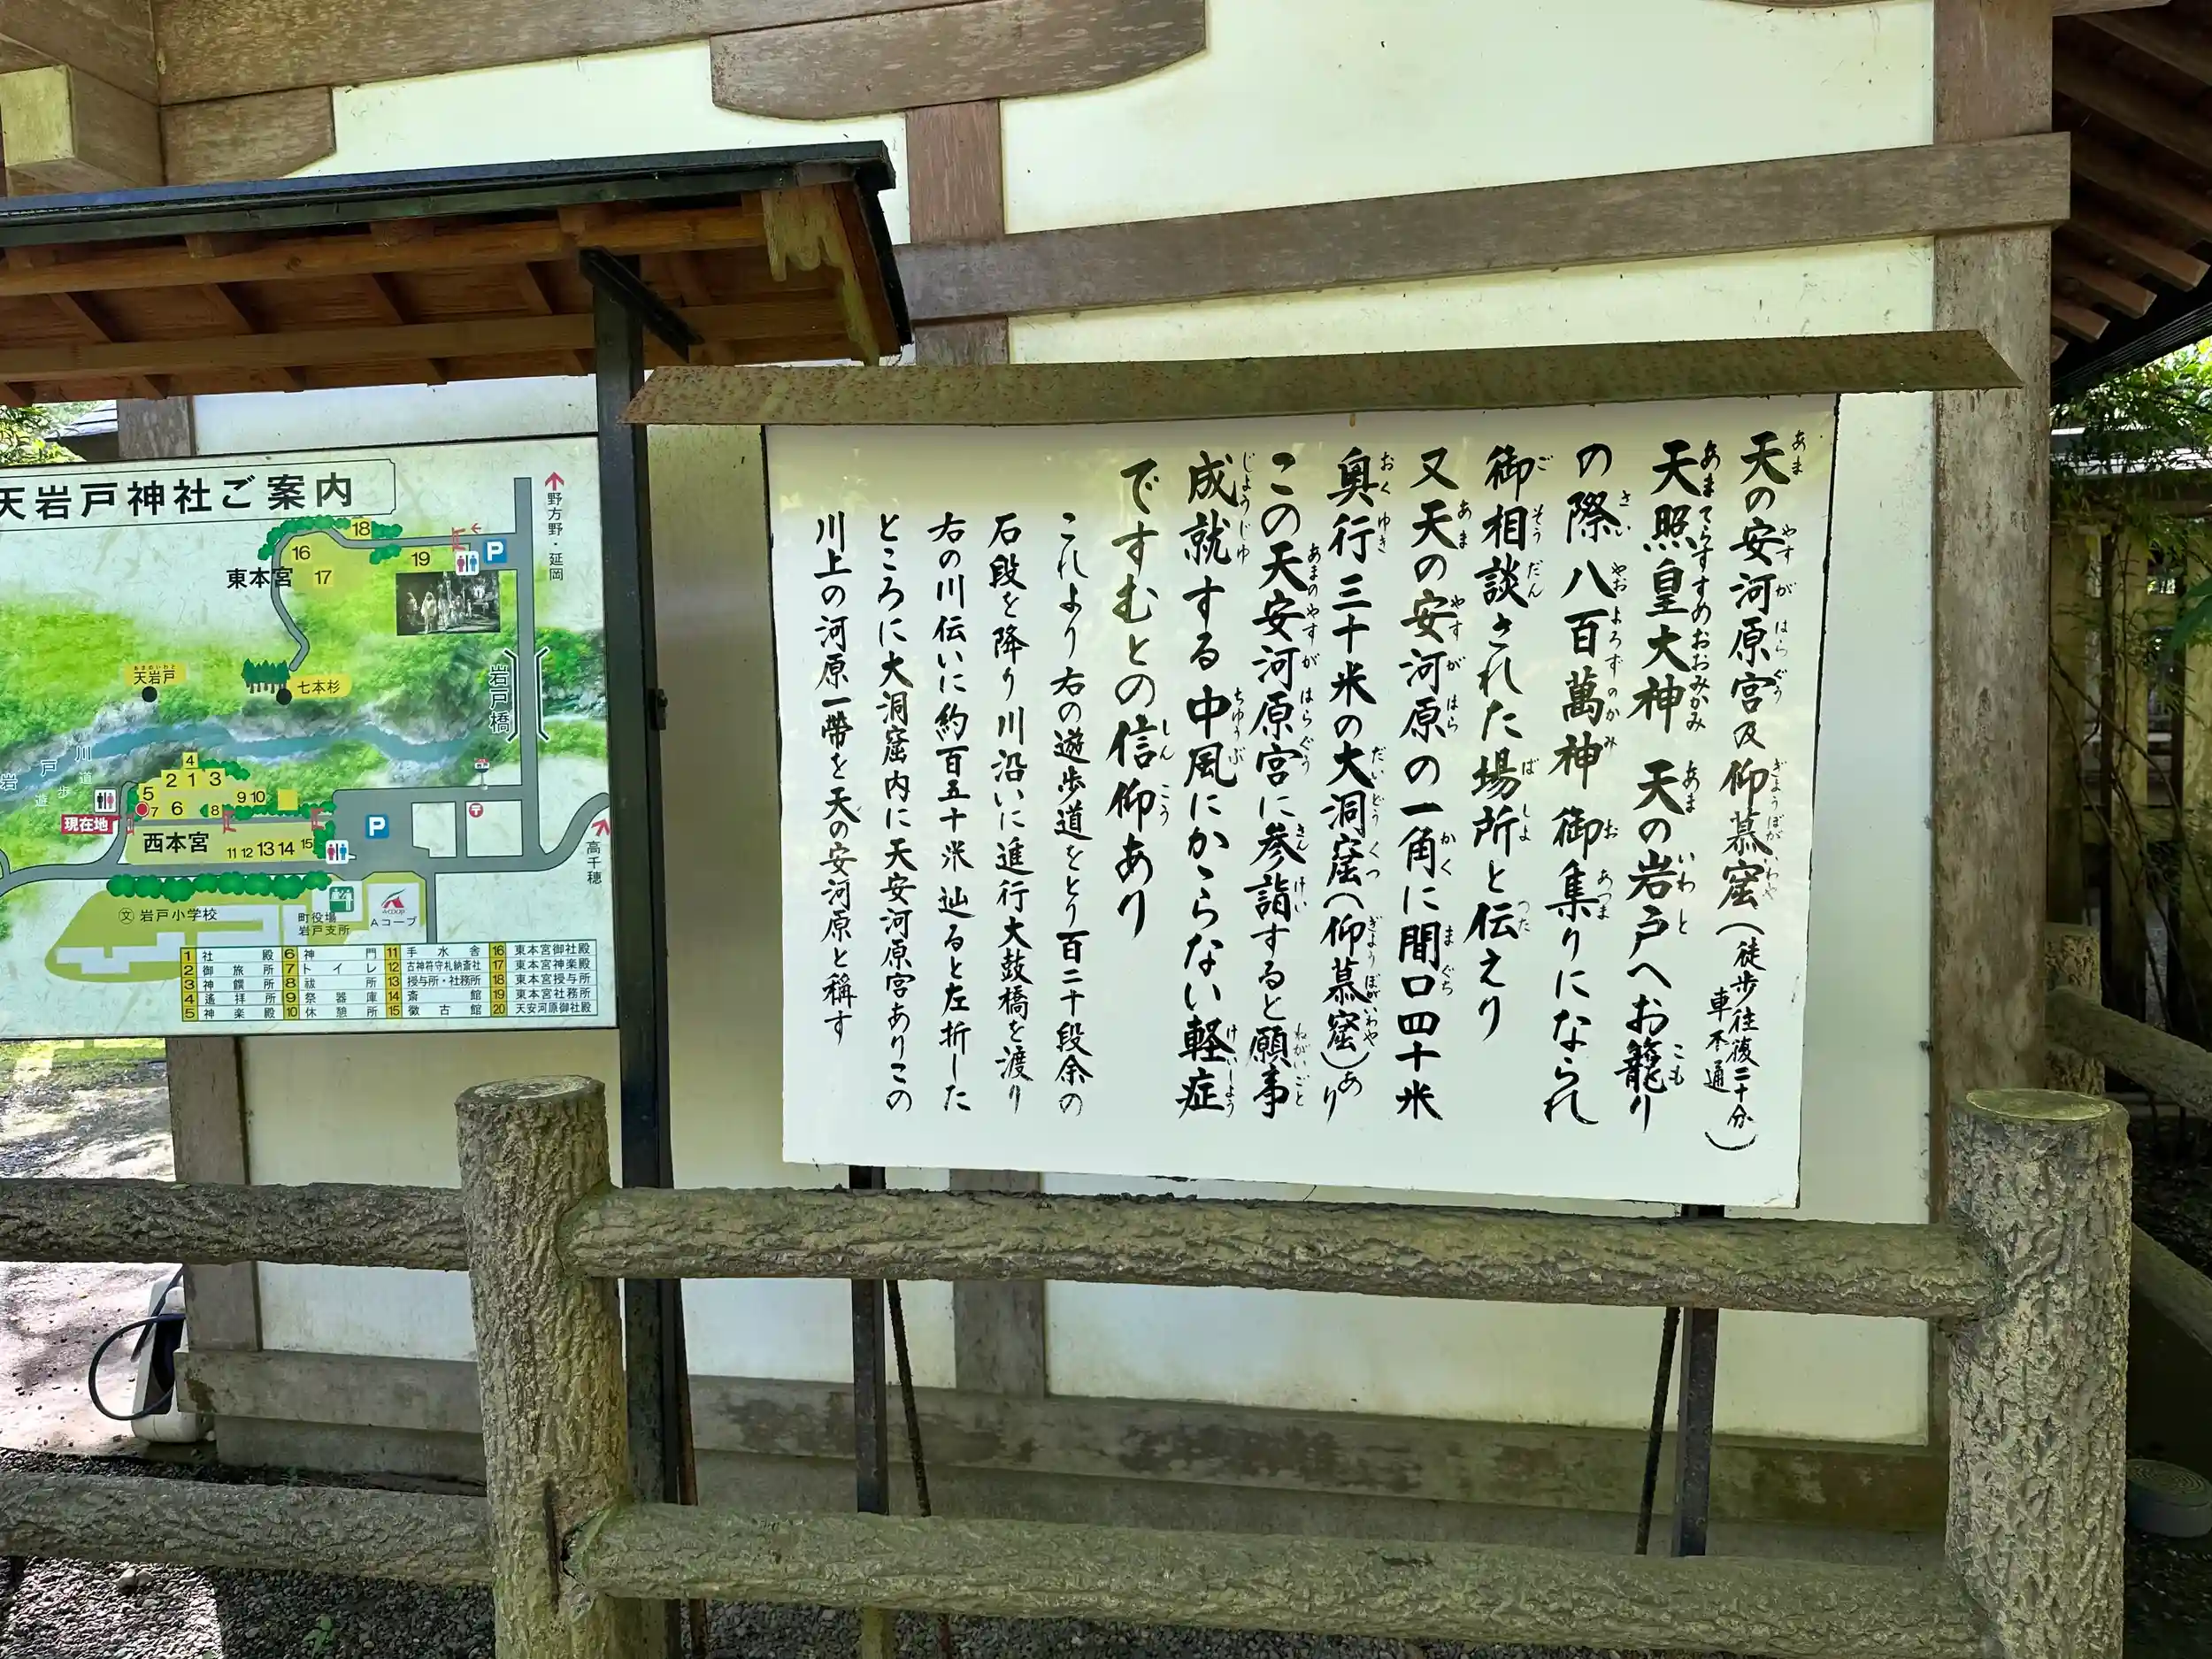 天の安河原宮及仰慕窟（徒歩往復二十分 車不通）
天照皇大神 天の岩戸へお籠り
の際八百萬神御集りになられ
御相談された場所と伝えり
又天の安河原の一角に間口四十米
奥行三十米の大洞窟（仰慕窟）あり
この天安河原宮に参詣すると願事
成就する中風にかからない軽症
ですむとの信仰あり
これより右の遊歩道をとり百二十段余の
石段を降り川沿いに進行太鼓橋を渡り
右の川伝いに約百五十米辿ると左折した
ところに大洞窟内に天安河原宮ありこの
川上の河原一帶を天の安河原と稱す
天岩戸神社ご案内
野方野・延岡
18
16
19
P
東本宮
17
あまのいわと
天岩戸
七本杉
岩戸橋
岩戸川
遊歩道
4
2 1 3
5
7 6 8 9 10
現在地
西本宮
11 12 13 14 15
P
高千穂
文 岩戸小学校
町役場
岩戸支所
Aコープ
1 社殿 6 神門 11 手水舎 16 東本宮御社殿
2 御旅所 7 トイレ 12 古神符守札納斎社 17 東本宮神楽殿
3 神饌所 8 祓所 13 授与所・社務所 18 東本宮授与所
4 遙拝所 9 祭器庫 14 斎館 19 東本宮社務所
5 神楽殿 10 休憩所 15 徴古館 20 天安河原御社殿